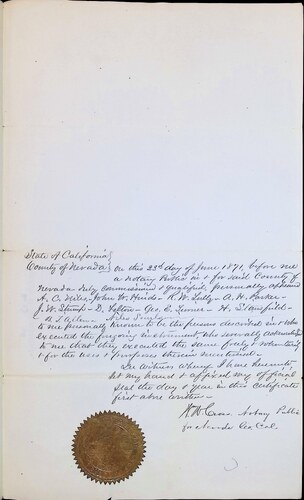 State of California }
County of Nevada } On this 23d day of June 1871, before me
a Notary Public in & for said County of
Nevada duly commissioned & qualified personally appeared
A. C. Niles, John
A. H. Parker -
J. W. - D. - Geo. C. - H.
Niles
to me personally known to be the persons described in & who
executed the foregoing instrument, who severally acknowledged
to me that they executed the same freely & voluntarily
& for the uses & purposes therein mentioned.
In witness whereof I have hereunto
set my hand & affixed my official
seal the day & year in this certificate
first above written.
Notary Public
for Nevada Co. Cal.